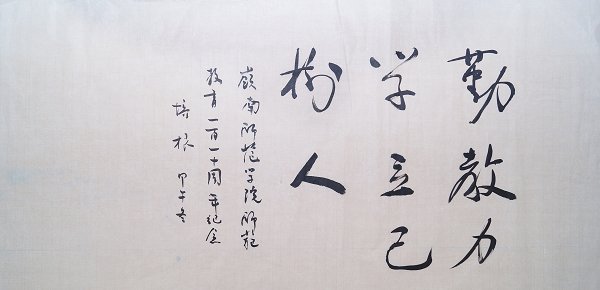 勤教力
学立己
树人
岭南师范学院师范
教育一百一十周年纪念
培根 甲午冬